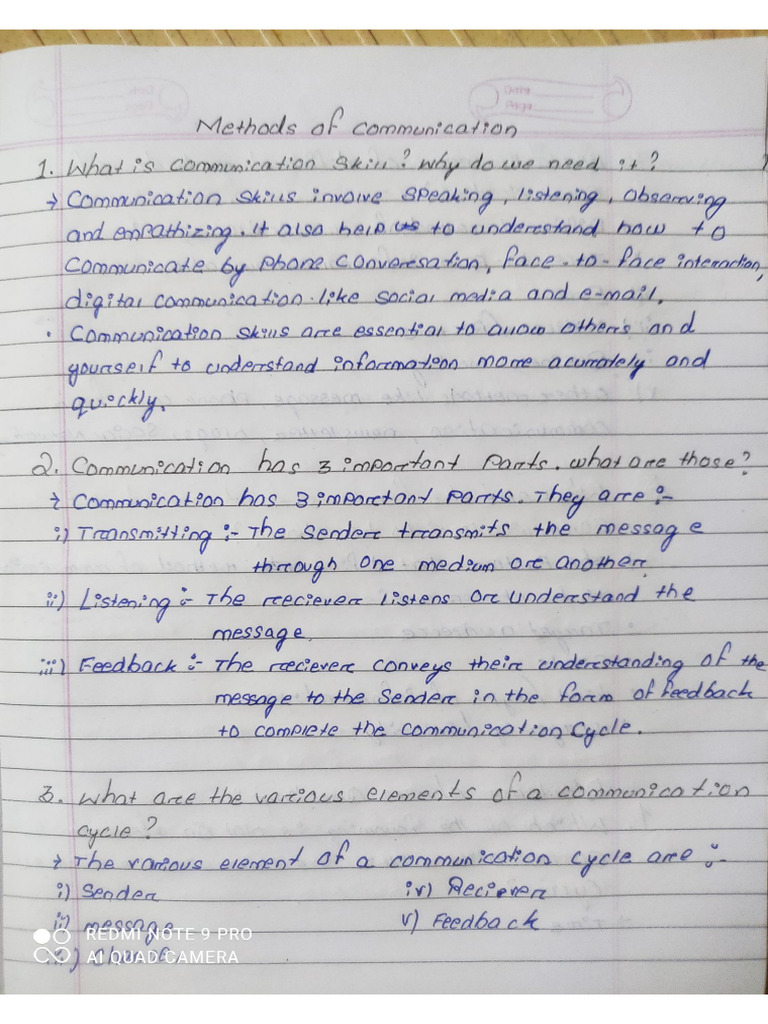 Date
Page
Methods of communication
1. What is communication skill? Why do we need it?
→ Communication skills involve speaking, listening, observing
and empathizing. It also help us to understand how to
communicate by phone conversation, face-to-face interaction,
digital communication like social media and e-mail.
• Communication skills are essential to allow others and
yourself to understand information more acurately and
quickly.
2. Communication has 3 important parts. What are those?
→ Communication has 3 important parts. They are :-
i) Transmitting :- The sender transmits the message
through one medium or another.
ii) Listening :- The reciever listens or understand the
message.
iii) Feedback :- The reciever conveys their understanding of the
message to the sender in the form of feedback
to complete the communication cycle.
3. What are the various elements of a communication
cycle?
→ The various element of a communication cycle are :-
i) Sender iv) Reciever
ii) message v) Feedback
REDMI NOTE 9 PRO
AI QUAD CAMERA